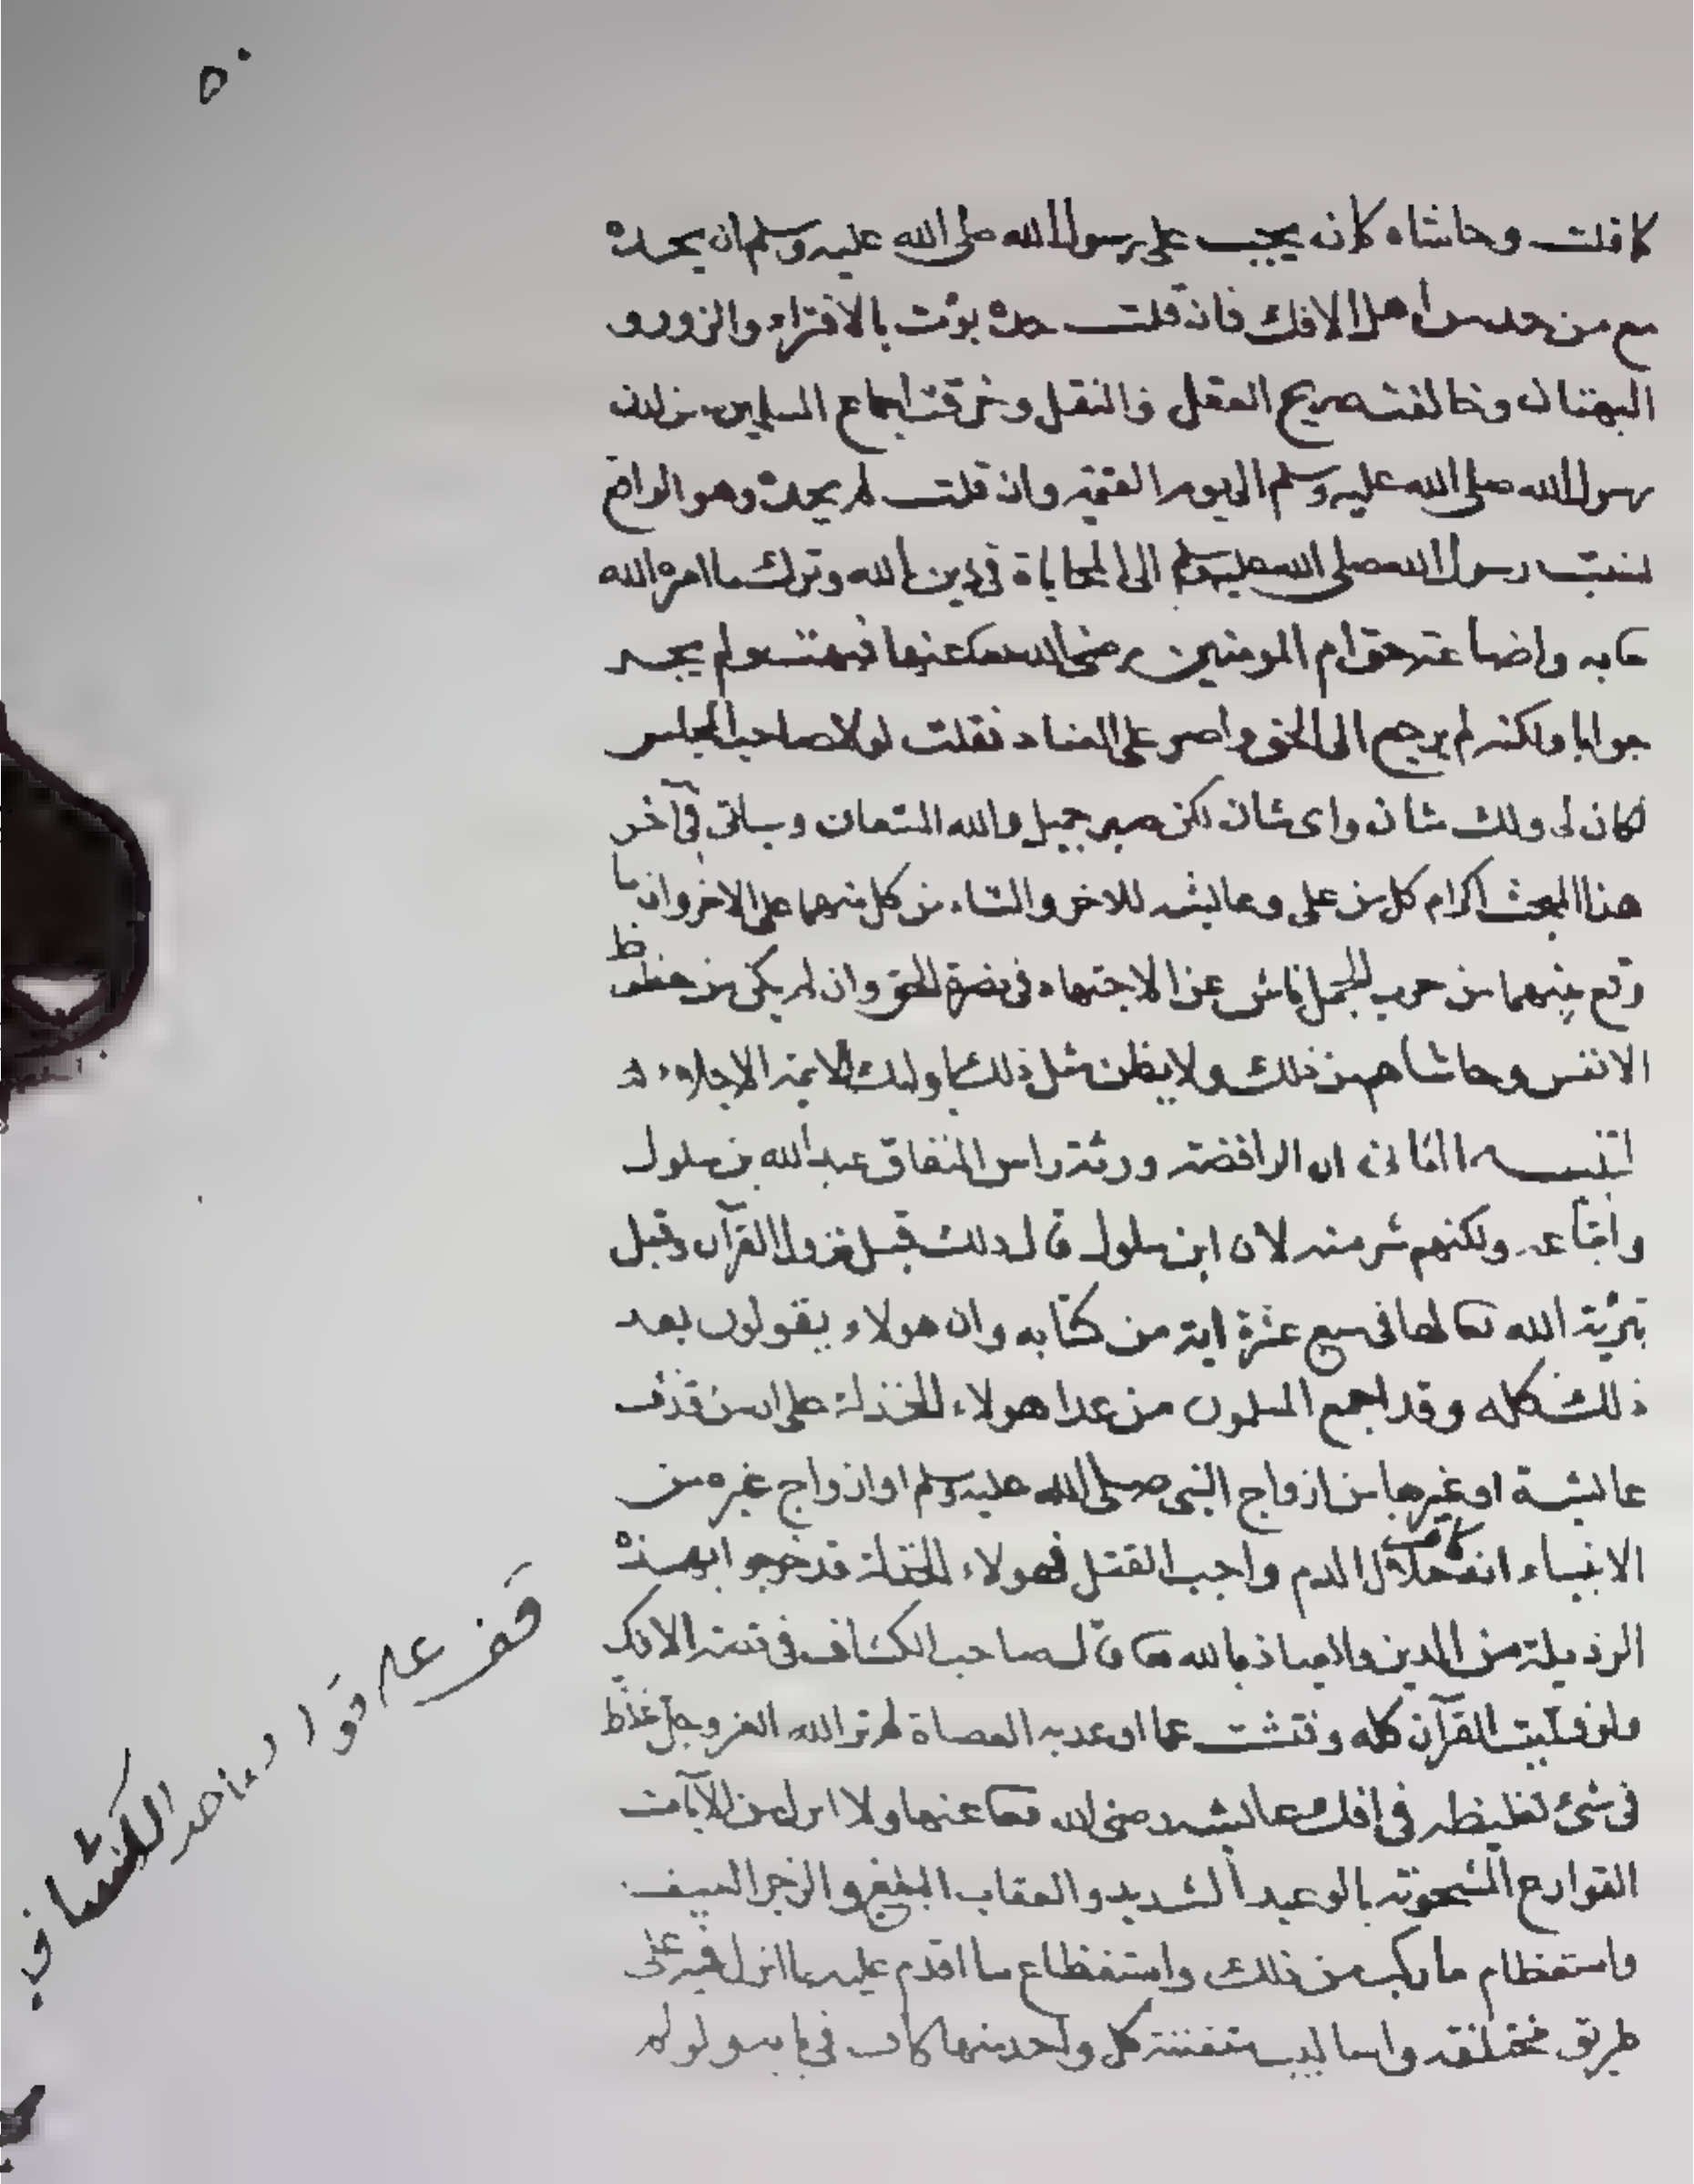 ٥٠
كما قلت وحاشاه كان يجب على رسول الله صلى الله عليه وسلم ان يحده
مع من حد من أهل الافك فان قلت حده بؤت بالافتراء والزور و
البهتان وخالفت صريح العقل والنقل وخرقت اجماع المسلمين من لدن
رسول الله صلى الله عليه وسلم الى يوم القيمة وان قلت لم يحده وهو الواقع
نسبت رسول الله صلى الله عليه وسلم الى المحاباة في دين الله وترك ما امره الله
تعالى به واضاعة حق ام المومنين رضي الله تعالى عنها فبهت ولم يحر
جوابا ولكنه لم يرجع الى الحق واصر على العناد فقلت لولا صاحب المجلس
لكان لى ولك شان واى شان لكن صبر جميل والله المستعان وسياتى في آخر
هذا المبحث اكرام كل من على وعايشه للاخر والثناء من كل منهما على الاخر وان ما
وقع بينهما من حرب الجمل ناش عن الاجتهاد فى نصرة الحق وان لم يكن من حظوظ
الانفس وحاشاهم من ذلك ولا يظن مثل ذلك باولئك الايمة الاجلاء
التنبيه الثانى ان الرافضة ورثة راس النفاق عبد الله بن سلول
واتباعه ولكنهم شر منه لان ابن سلول قال ذلك قبل نزول القرآن وقبل
تبرئة الله تعالى لها فى سبع عشرة اية من كتابه وان هولاء يقولون بعد
ذلك كله وقد اجمع المسلمون من عدا هولاء الخذلة على ان من قذف
عايشة او غيرها من ازواج النبى صلى الله عليه وسلم او ازواج غيره من
الانبياء انه كافر حلال الدم واجب القتل فهولاء الخذلة قد خرجوا بهذه
الرذيلة من الدين والعياذ بالله تعالى قال صاحب الكشاف فى قصة الافك
ولو فليت القرآن كله وفتشت عما اوعد به العصاة لم تر الله العز وجل غلظ
فى شئ تغليظه في افك عايشه رضي الله تعالى عنها ولا انزل من الآيات
القوارع المشحونة بالوعيد الشديد والعقاب البليغ والزجر العنيف
واستعظام ما ركب من ذلك واستفظاع ما اقدم عليه ما انزل فيه على
طريق مختلفه واساليب متفننة كل واحد منها كاف في بابه ولو لم
قف على قول صاحب الكشاف